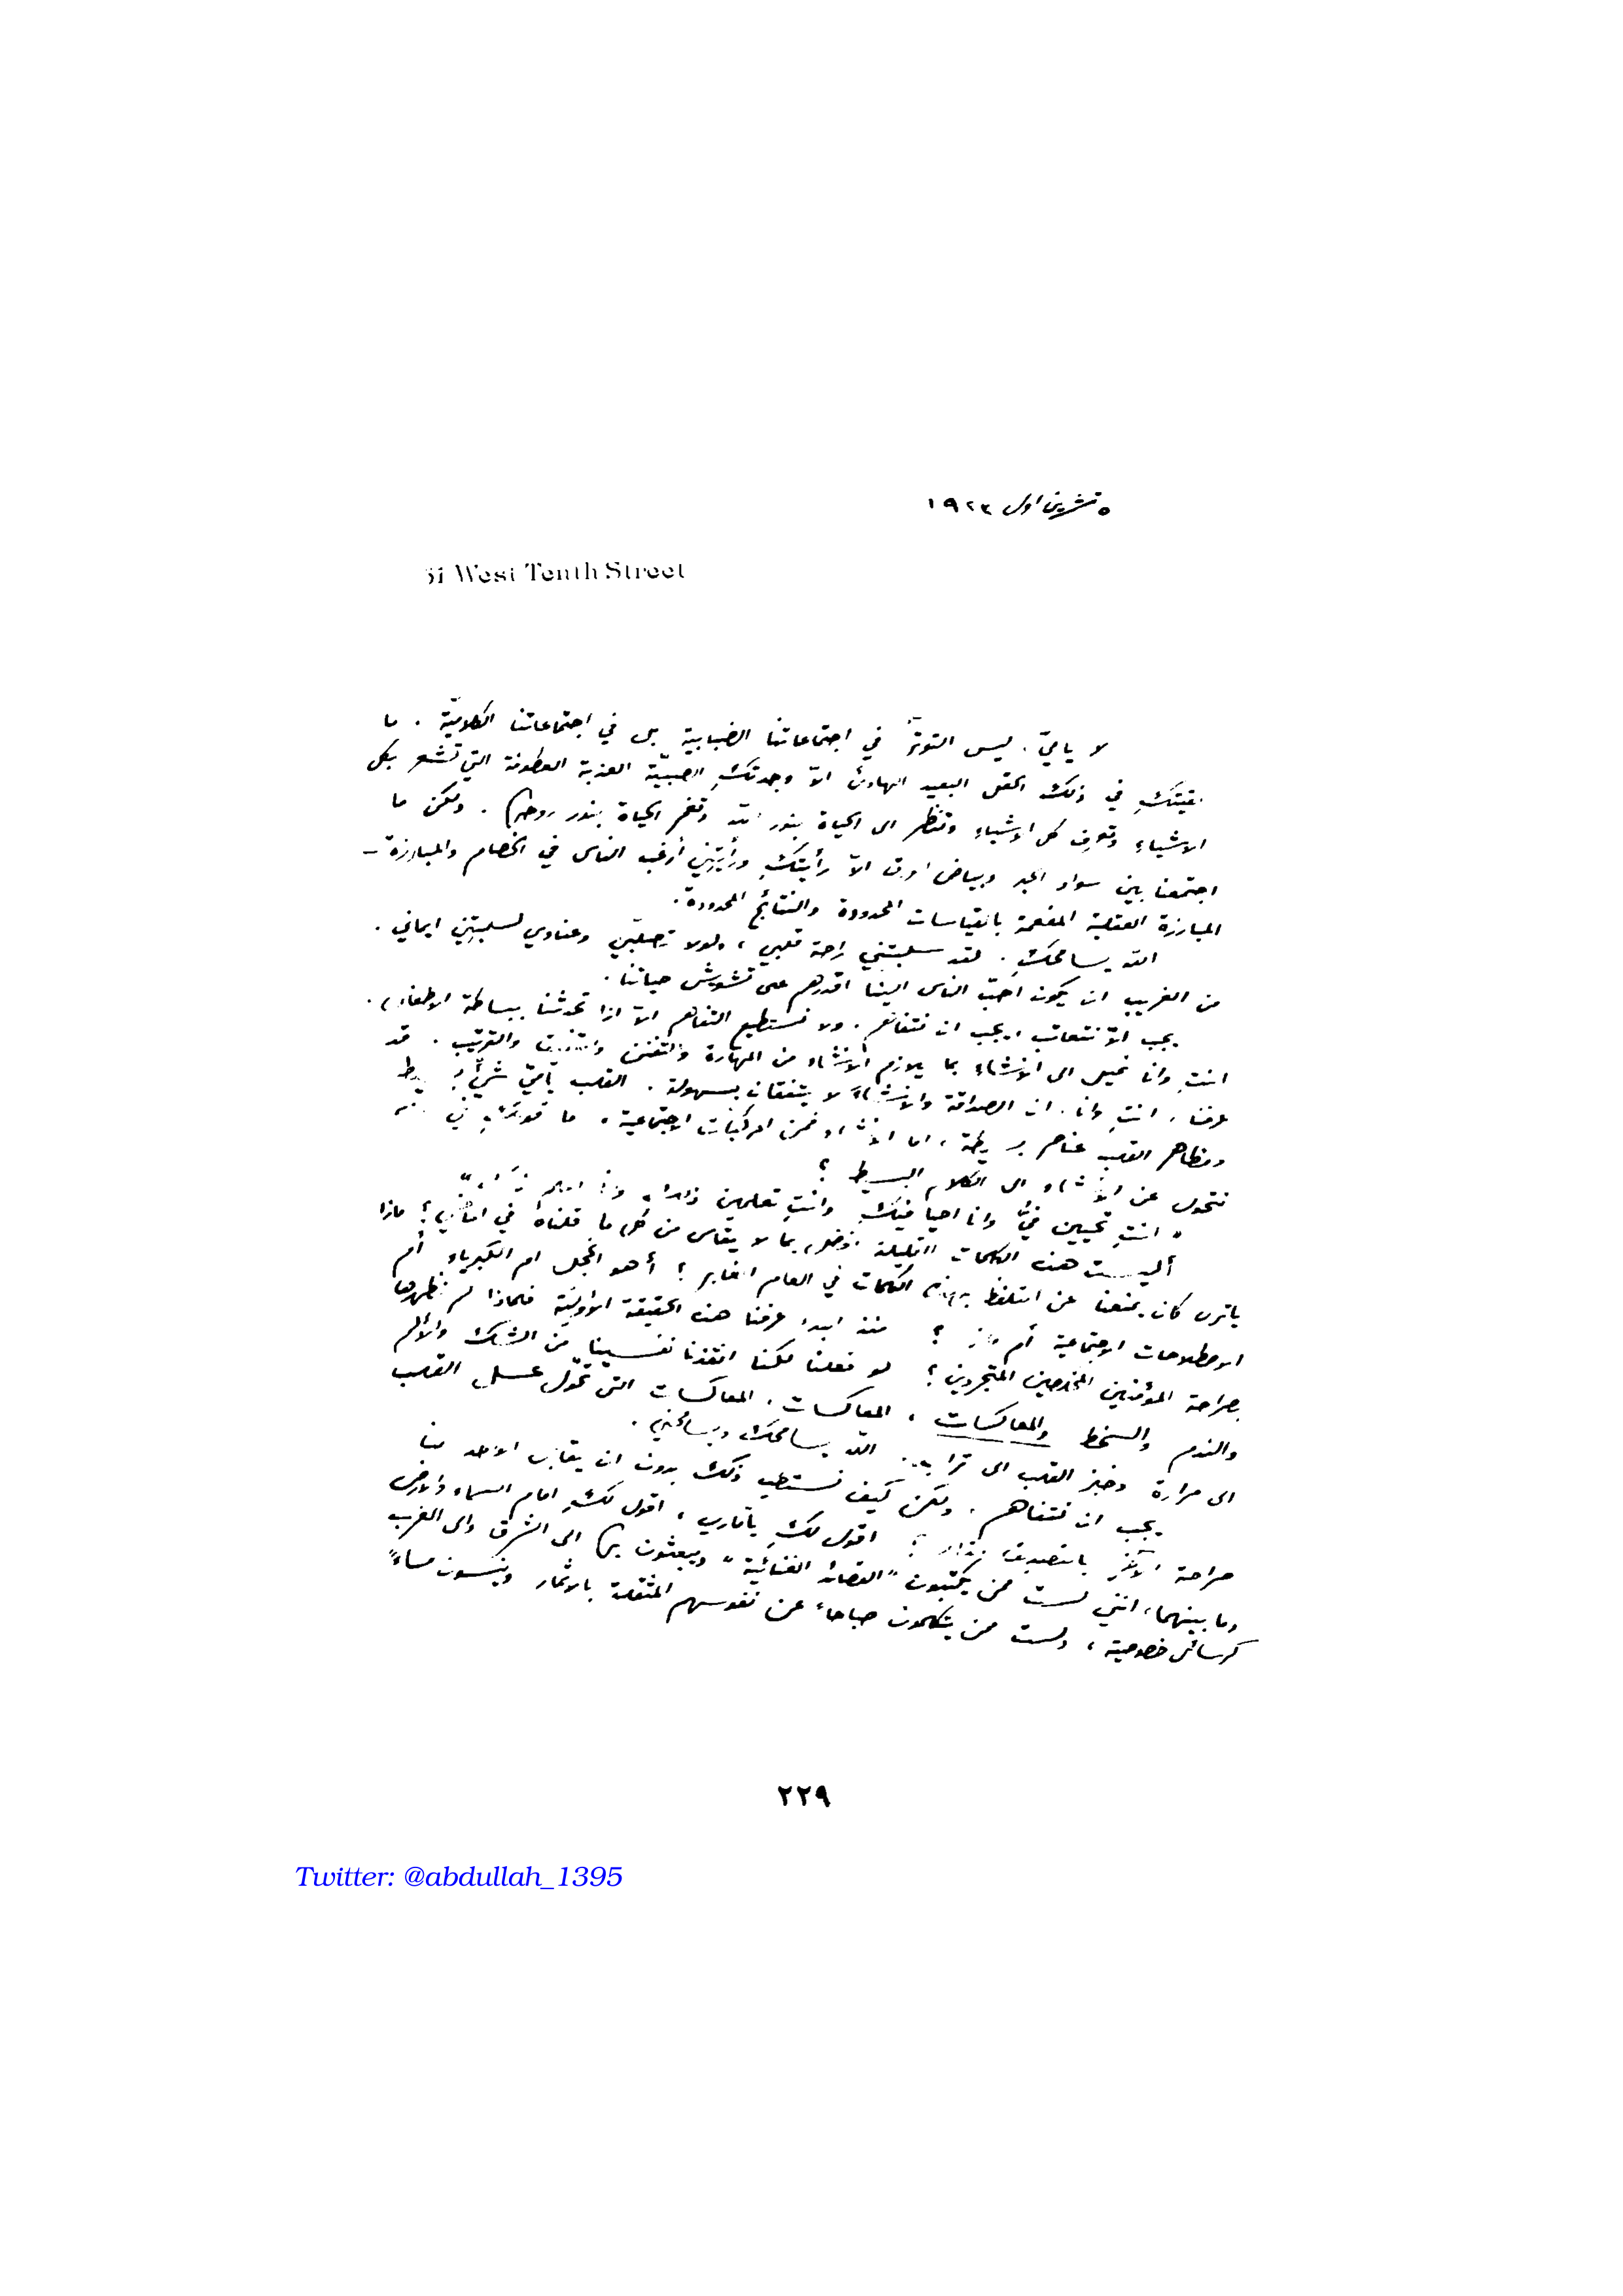 ٥ تشرين اول ١٩٢٣
51 West Tenth Street
لا يا ميّ . ليس التوتّر في اجتماعاتنا الضبابية بل في اجتماعاتنا الكلاميّة . ما
لقيتكِ في ذلك الحقل البعيد الهادئ الاّ وجدتكِ الصبيّة العذبة العطوفة التي تشعر بكل
الاشياء وتعرف كل الاشياء وتنظر الى الحياة بنور الله وتغمر الحياة بنور روحها . ولكن ما
اجتمعنا بين سواد الحبر وبياض الورق الاّ رأيتكِ ورأيتِني أرغب الناس في الخصام والمبارزة –
المبارزة العقلية المفعمة بالقياسات المحدودة والنتائج المحدودة .
الله يسامحكِ . لقد سلبتني راحة قلبي ، ولولا تصلّبي وعنادي لسلبتِني ايماني .
من الغريب ان يكون احبّ الناس الينا اقدرهم على تشويش حياتنا .
يجب الاّ نتعاتب ، يجب ان نتفاهم . ولا نستطيع التفاهم الاّ اذا تحدثنا ببساطة الاطفال .
انتِ وانا نميل الى الانشاء بما يلازم الانشاء من المهارة والتفنن والتنميق والترتيب . قد
عرفنا ، انتِ وانا ، ان الصداقة والانشاء لا يتفقان بسهولة . القلب يا ميّ شيء بسيط
ومظاهر القلب عناصر بسيطة ، اما الانشاء فمن المركبات الاجتماعية . ما قولكِ في ان
نتحول عن الانشاء الى الكلام البسيط ؟
" انتِ تحيين فيّ وانا احيا فيكِ وانتِ تعلمين ذلك وانا اعلم ذلك "
أليست هذه الكلمات القليلة افضل بما لا يقاس من كل ما قلناه في الماضي ؟ ماذا
يا ترى كان يمنعنا عن التلفظ بهذه الكلمات في العام الغابر ؟ أهو الخجل ام الكبرياء أم
الاصطلاحات الاجتماعية أم ماذا ؟ منذ البدء عرفنا هذه الحقيقة الأوليّة فلماذا لم نظهرها
بصراحة المؤمنين المخلصين المتجردين ؟ لو فعلنا لكنا انقذنا نفسينا من الشك والألم
والندم والسخط والمعاكسات ، المعاكسات ، المعاكسات التي تحوّل عسل القلب
الى مرارة وخبز القلب الى تراب . الله يسامحك ويسامحني .
يجب ان نتفاهم . ولكن كيف نستطيع ذلك بدون ان يقابل الواحد منا
صراحة الآخر بالتصديق التام ؟ اقول لكِ يا ماري ، اقول لكِ امام السماء والارض
وما بينهما ، انني لست ممن يكتبون " القصائد الغنائية " ويبعثون بها الى الشرق والى الغرب
كرسائل خصوصية ، ولست ممن يتكلمون صباحاً عن نفوسهم المثقلة بالاثمار وينسون مساءً
٢٢٩
Twitter: @abdullah_1395